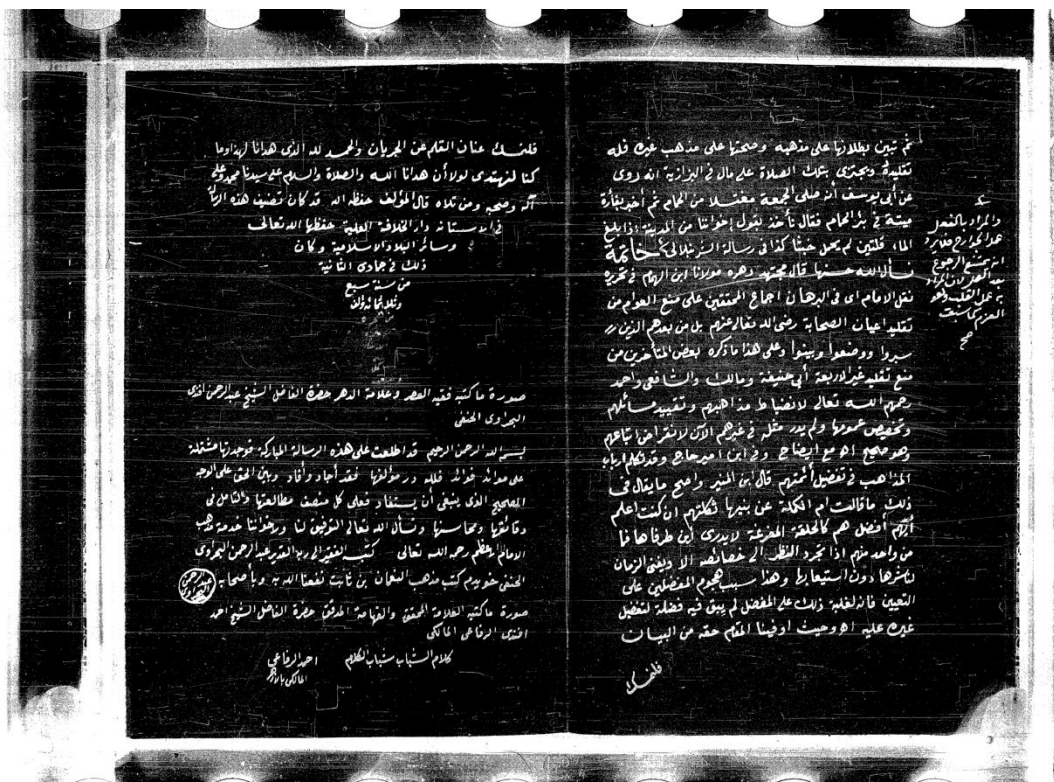 ثم تبين بطلانها على مذهبه وصحتها على مذهب غيره فله
تقليده ويجتزى بتلك الصلاة على ما قال في البزازية انه روى
عن أبي يوسف أنه صلى الجمعة مغتسلا من الحمام ثم أخبر بفأرة
ميتة في بئر الحمام فقال نأخذ بقول إخواننا من المدينة إذا بلغ
الماء قلتين لم يحمل خبثا كذا في رسالة الشرنبلالى خاتمة
نسأل الله حسنها قال مجتهد دهره مولانا ابن الهمام في تحريره
نقل الامام اى في البرهان اجماع المحققين على منع العوام من
تقليد اعيان الصحابة رضى الله تعالى عنهم بل من بعدهم الذين
سبروا ووضعوا وعلى هذا ما ذكره بعض المتأخرين من
منع تقليد غير الاربعة أبى حنيفة ومالك والشافعى واحمد
رحمهم الله تعالى لانضباط مذاهبهم وتقييد مسائلهم
وتخصيص عمومها ولم يدر مثله في غيرهم الآن لانقراض اتباعهم
وهو صحيح اه مع ايضاح في ابن امير حاج وقد تكلم ارباب
المذاهب في تفضيل أئمتهم قال ابن المنير واصح ما يقال في
ذلك ما قالت ام الكملة عن بنيها ثكلتهم ان كنت اعلم
أيهم أفضل هم كالحلقة المفرغة لا يدرى أين طرفاها فما
من واحد منهم اذا تجرد النظر الى خصائصه الا ويفنى الزمان
لناشرها دون استيعابها وهذا سبب هجوم المفضلين على
التعيين فانه لغلبة ذلك على المفضل لم يبق فيه فضلة لتفضيل
غيره عليه اه وحيث اوفينا المقام حقه من البيان
فلنمسك
والمراد بالفعل
الرجوع
بعد العمل لان المراد
فلنمسك عنان القلم عن الجريان والحمد لله الذى هدانا لهذا وما
كنا لنهتدى لولا أن هدانا الله والصلاة والسلام على سيدنا محمد وعلى
آله وصحبه ومن تلاه قال المؤلف حفظه الله قد كان تصنيف هذه الرسالة
في الاستانه دار الخلافة العلية حفظها الله تعالى
وسائر البلاد الاسلامية وكان
ذلك في جمادى الثانية
من سنة سبع
وثلاثمائة وألف
صورة ما كتبه فقيه العصر وعلامة الدهر حضرة الفاضل الشيخ عبدالرحمن افندى
البحراوى الحنفى
بسم الله الرحمن الرحيم قد اطلعت على هذه الرسالة المباركة فوجدتها مشتملة
على فوائد فلله در مؤلفها فقد أجاد وأفاد وبين الحق على الوجه
الصحيح الذى ينبغى أن يستفاد فعلى كل منصف مطالعتها والتأمل في
دقائقها ومحاسنها ونسأل الله تعالى التوفيق لنا ولإخواننا خدمة مذهب
الامام الاعظم رحمه الله تعالى كتبه الفقير الى ربه القدير عبدالرحمن البحراوى
الحنفى خويدم كتب مذهب النعمان بن ثابت نفعنا الله به وبأصحابه
صورة ما كتبه العلامة المحقق والفهامة المدقق حضرة الفاضل الشيخ احمد
افندى الرفاعى المالكى
كلام الشباب شباب الكلام
احمد الرفاعى
المالكى بالازهر